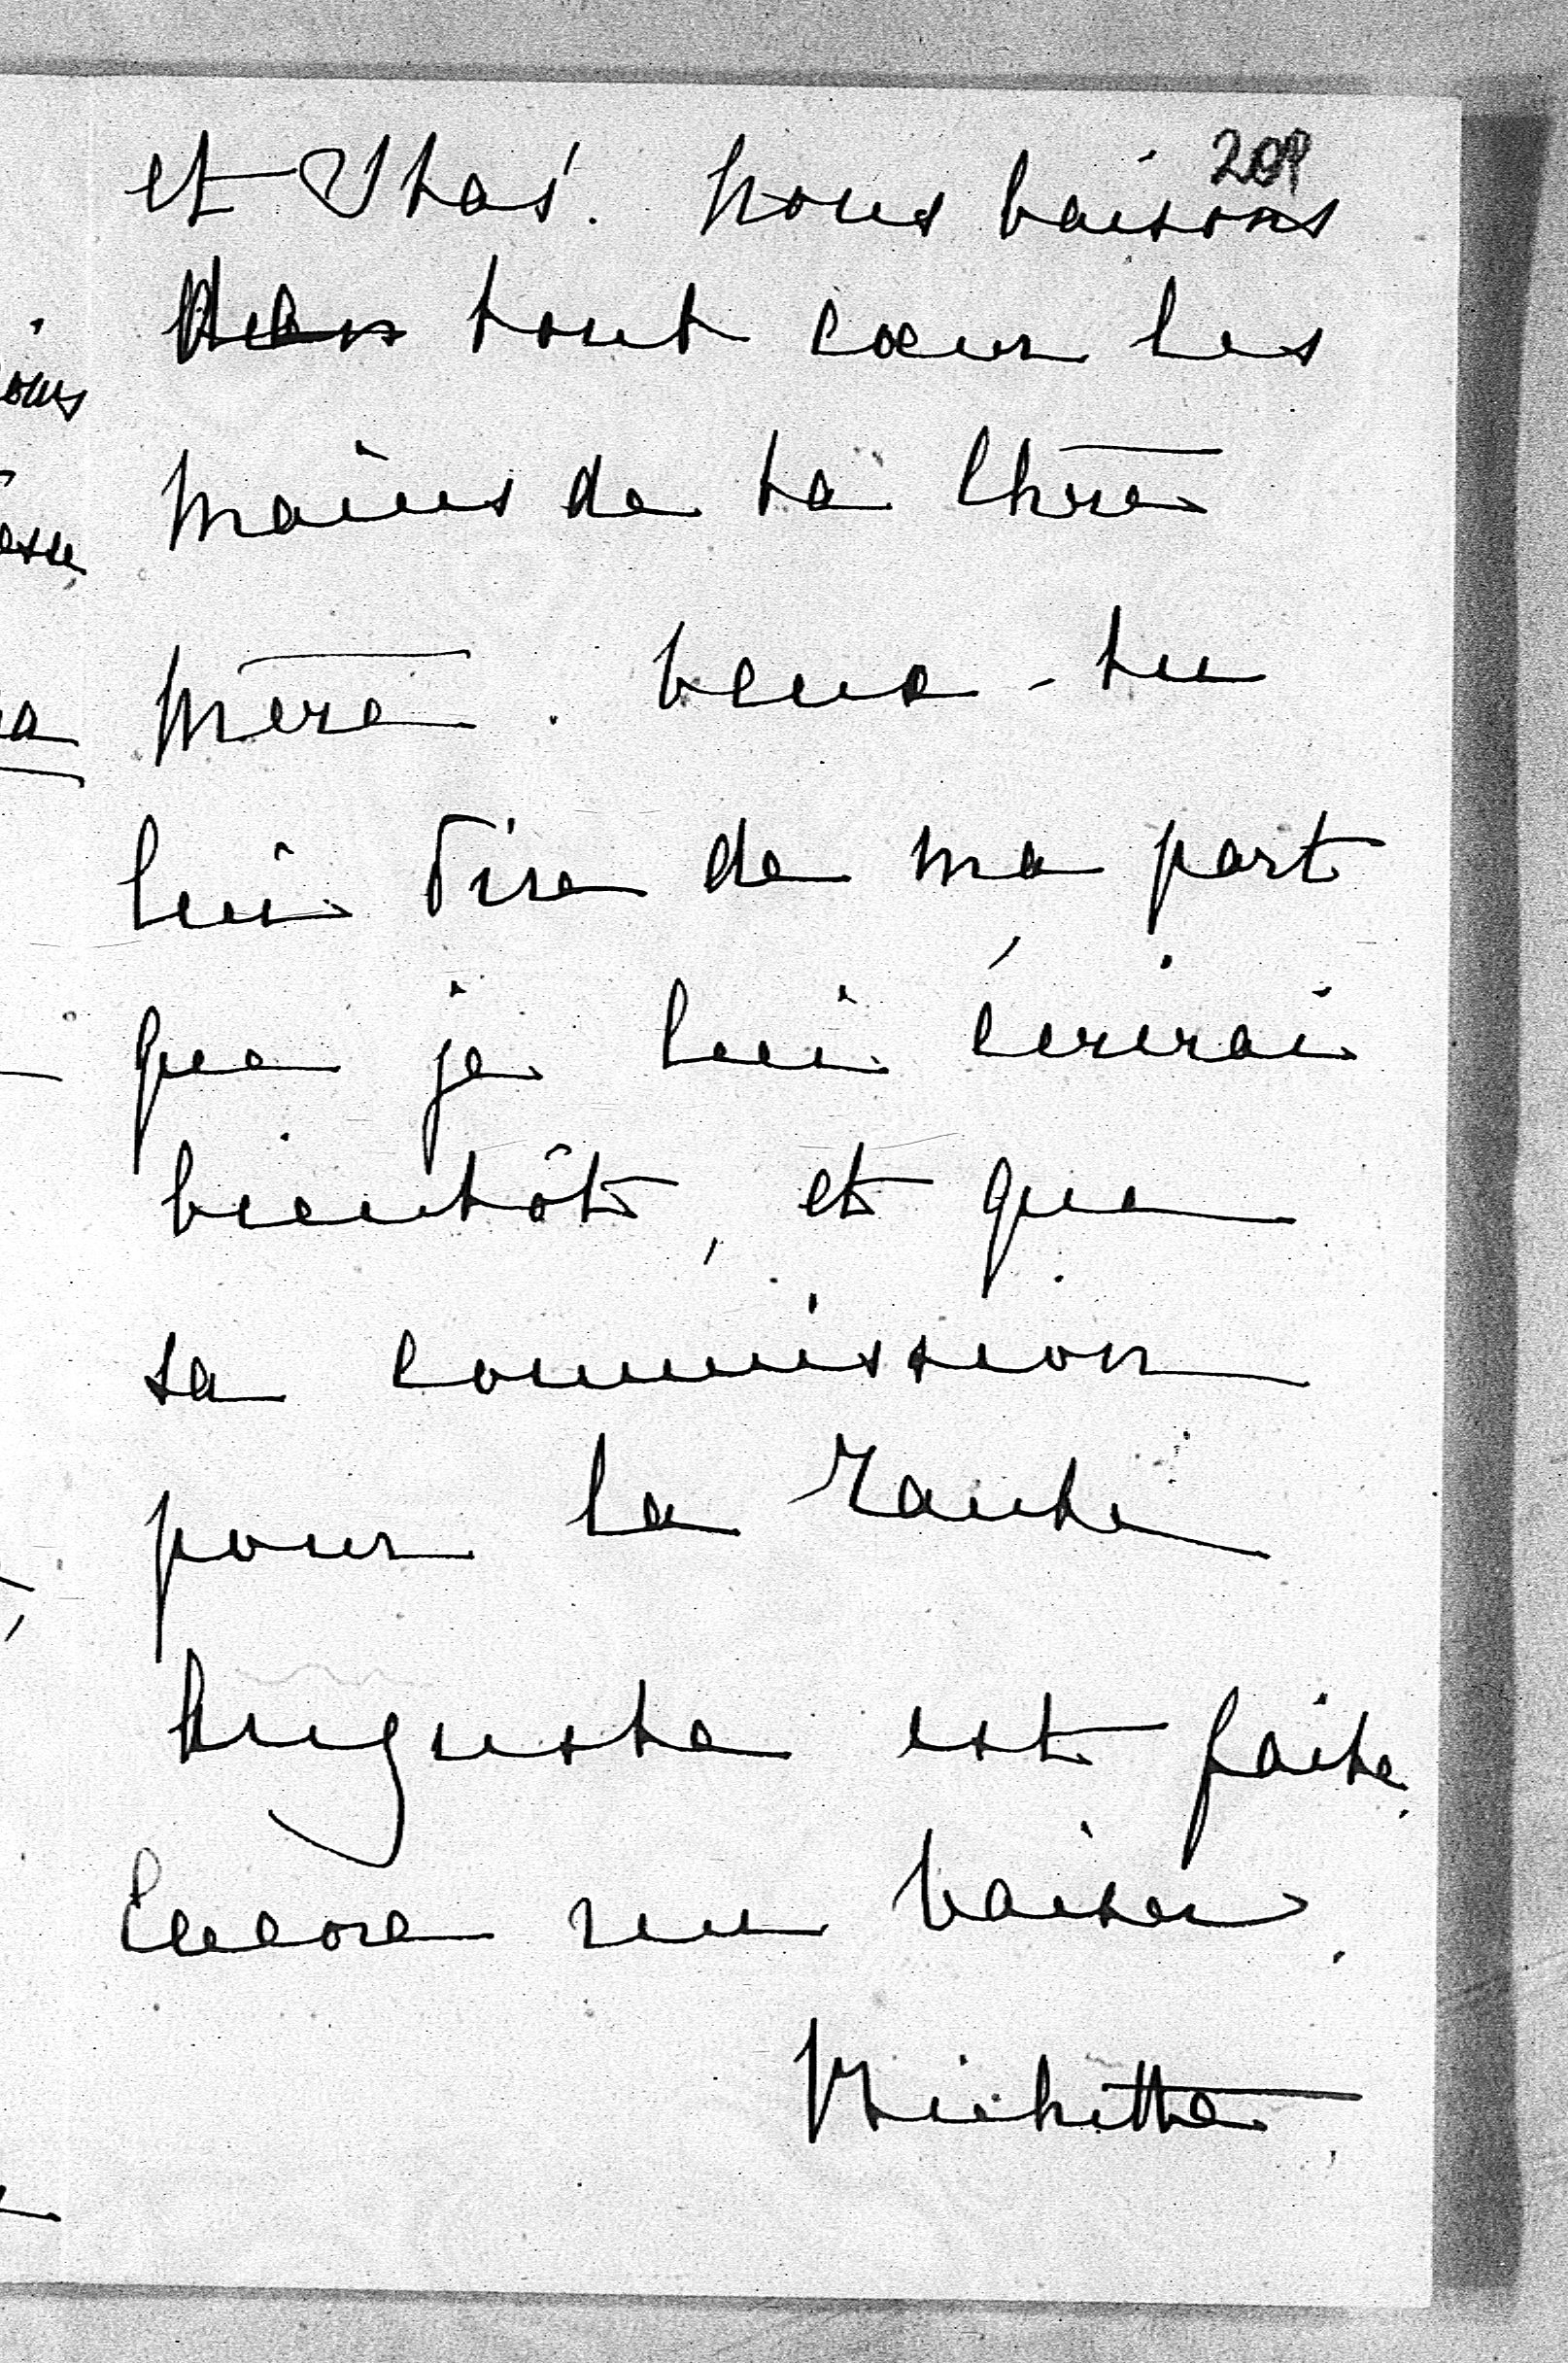 209
et Thas. Nous baisons
de tout cœur les
mains de ta chère
mère. Veux-tu
lui dire de ma part
que je lui écrirai
bientôt, et que
sa commission
pour la Tante
Auguste est faite.
Encore un baiser.
Michette